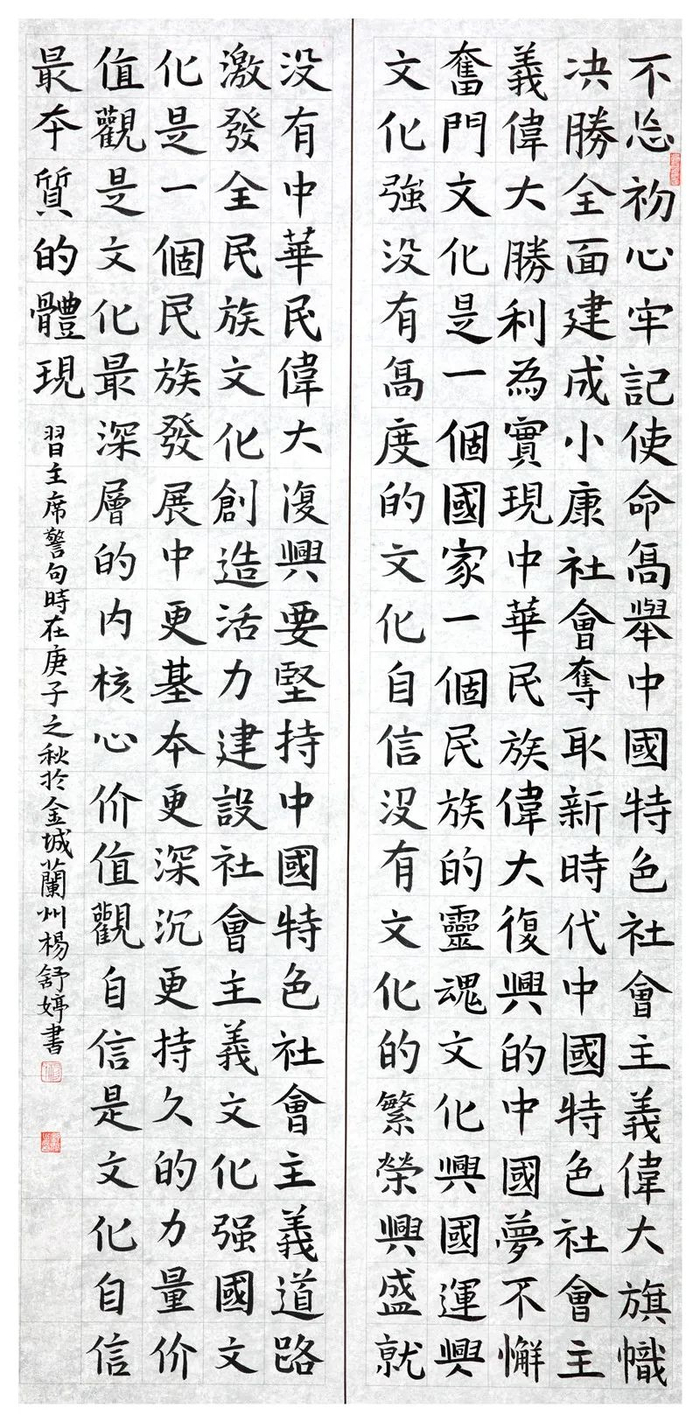 不忘初心牢記使命高舉中國特色社會主義偉大旗幟
决勝全面建成小康社會奪取新時代中國特色社會主
義偉大勝利為實現中華民族偉大復興的中國夢不懈
奮鬥文化是一個國家一個民族的靈魂文化興國運興
文化強没有高度的文化自信没有文化的繁榮興盛就
没有中華民偉大復興要堅持中國特色社會主義道路
激發全民族文化創造活力建設社會主義文化强國文
化是一個民族發展中更基本更深沉更持久的力量价
值觀是文化最深層的内核心价值觀自信是文化自信
最本質的體現
習主席警句時在庚子之秋於金城蘭州楊舒婷書